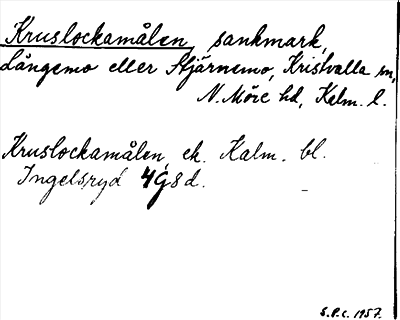 Kruslockamålen, sankmark,
Långemo eller Stjärnemo, Kristvalla sn,
N. Möre hd, Kalm. l.
Kruslockamålen, ek. Kalm. bl.
Ingelsryd 4G8d.
S.P.C. 1957.